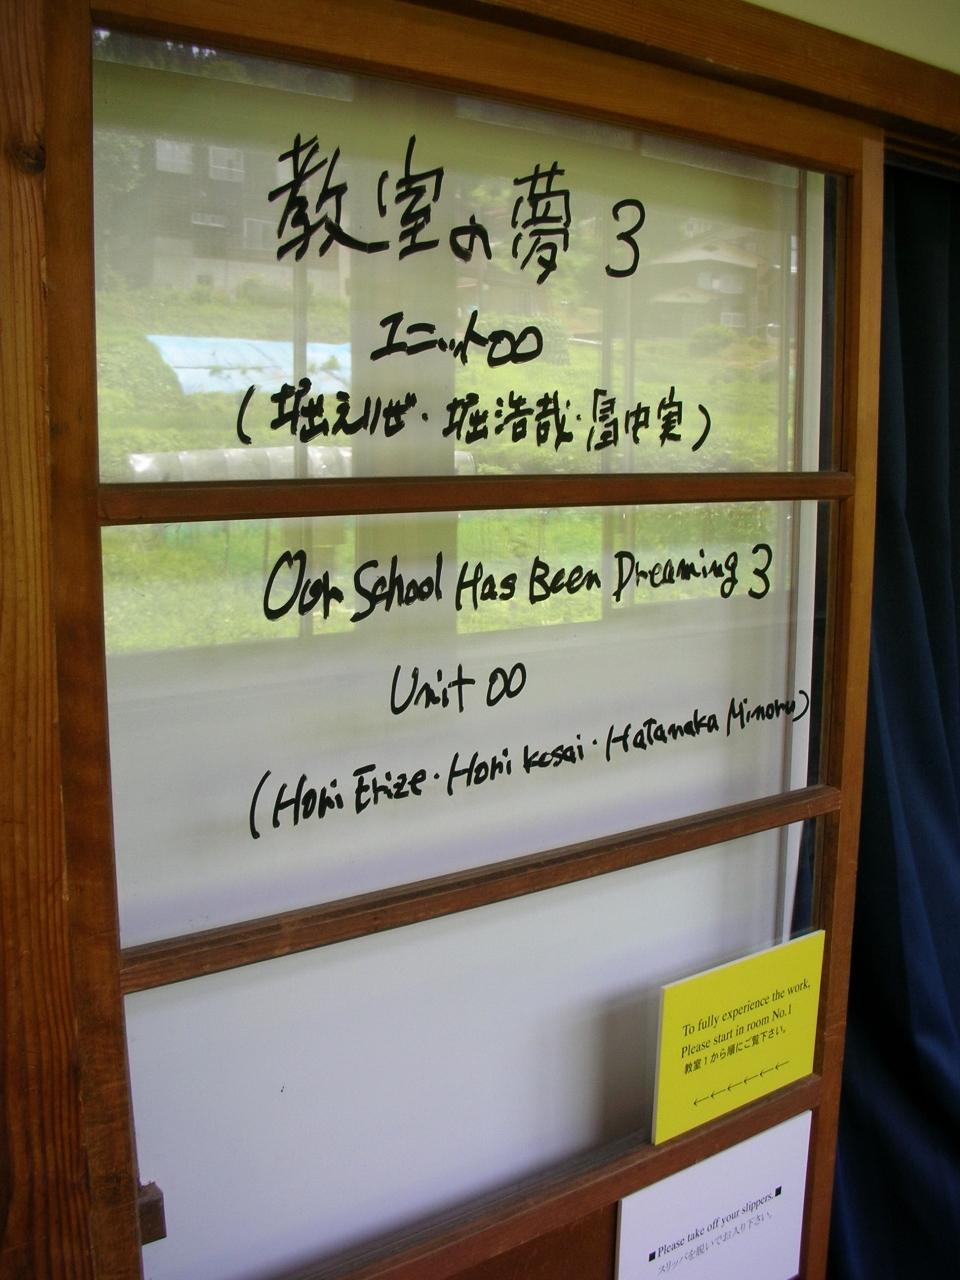 教室の夢 3
ユニット00
(堀えりぜ・堀浩哉・畠中実)
Our School Has Been Dreaming 3
Unit 00
(Hori Erize・Hori Kosai・HaTanaka Minoru)
To fully experience the work,
Please start in room No.1
教室1から順にご覧下さい。
←←←←←←
■Please take off your slippers.■
スリッパを脱いでお入り下さい。